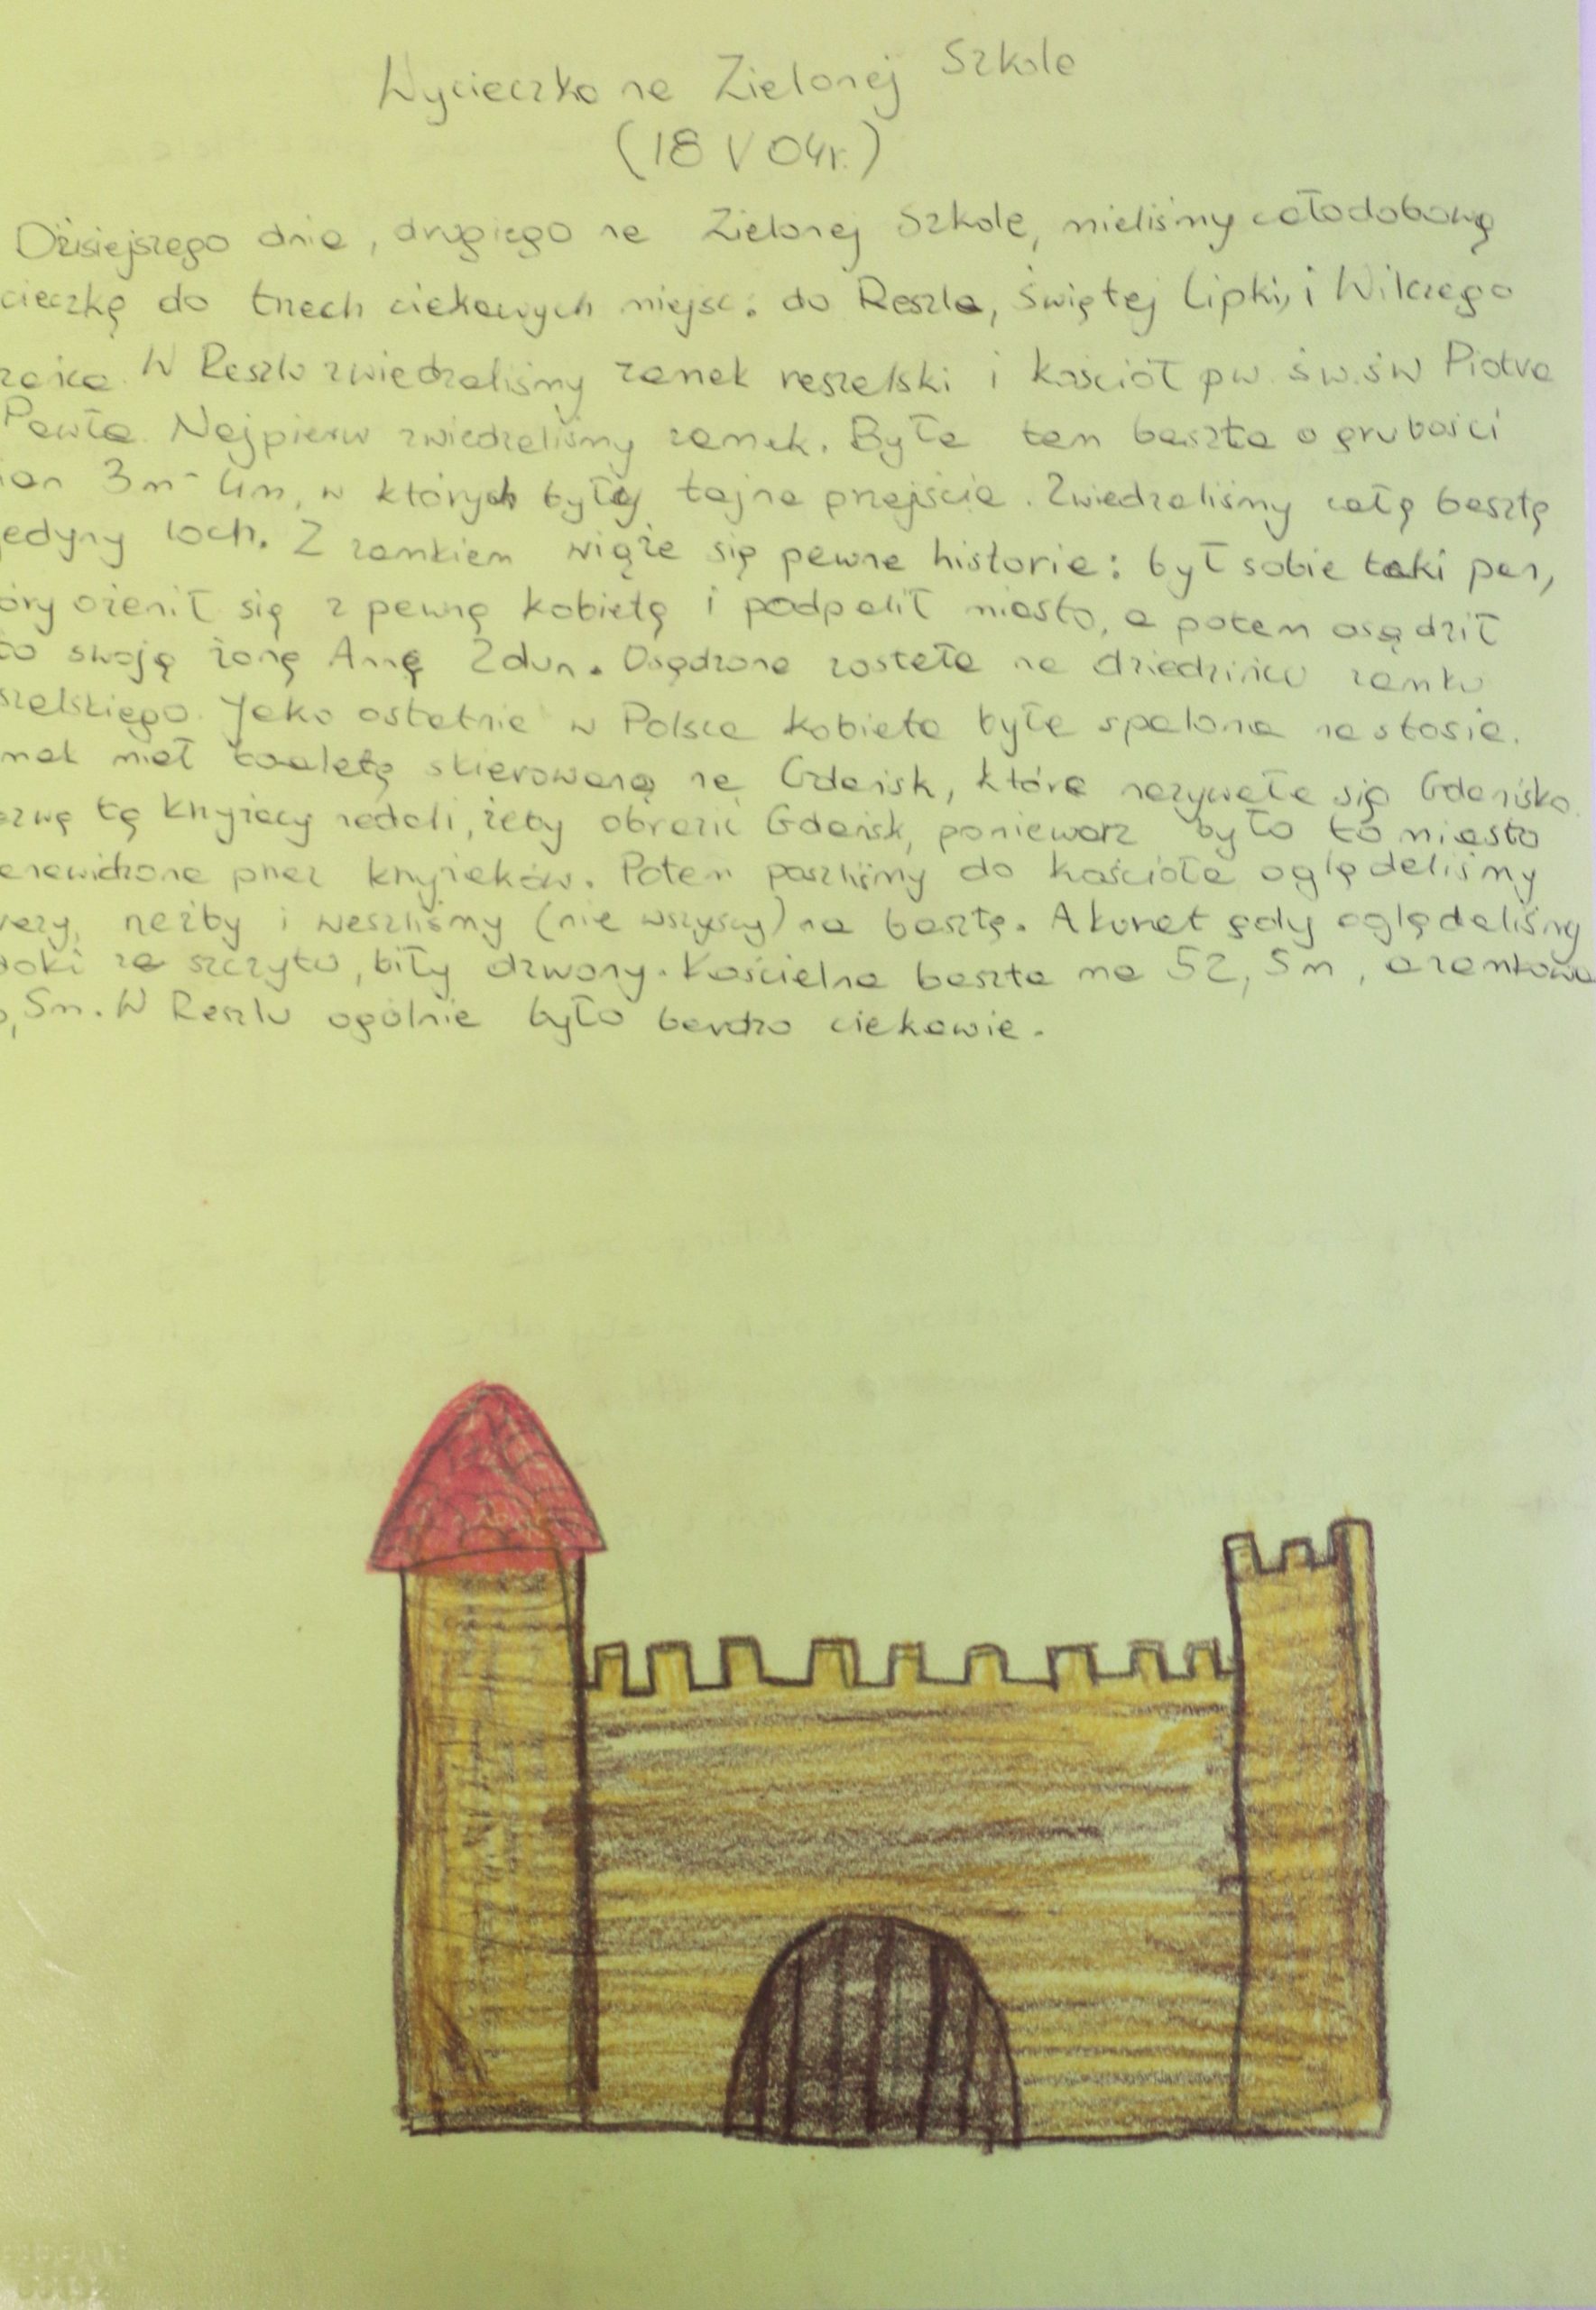 Wycieczka na Zielonej Szkole
(18 V 04r.)
Dzisiejszego dnia, drugiego na Zielonej Szkole, mieliśmy całodobową
cieczkę do trzech ciekawych miejsc: do Reszla, Świętej Lipki, i Wilczego
W Reszlu zwiedzaliśmy zamek reszelski i kościół pw. św.św Piotra
Pawła. Najpierw zwiedzaliśmy zamek. Była tam baszta o grubości
ian 3m-4m, w których były tajne przejścia. Zwiedzaliśmy całą basztę
jedyny loch. Z zamkiem wiąże się pewna historia: był sobie taki pan,
óry ożenił się z pewną kobietą i podpalił miasto, a potem osądził
to swoją żonę Annę Zdun. Osądzona została na dziedzińcu zamku
szelskiego. Jako ostatnia w Polsce kobieta była spalona na stosie.
mek miał toaletę skierowaną na Gdańsk, która nazywała się Gdanisko.
azwę tę krzyżacy nadali, żeby obrazić Gdańsk, ponieważ było to miasto
enawidzone przez krzyżaków. Potem poszliśmy do kościoła oglądaliśmy
rzeźby i weszliśmy (nie wszyscy) na basztę. Akurat gdy oglądaliśmy
doki ze szczytu, biły dzwony. Kościelna baszta ma 52,5m, a zamkowa
,5m. W Reszlu ogólnie było bardzo ciekawie.